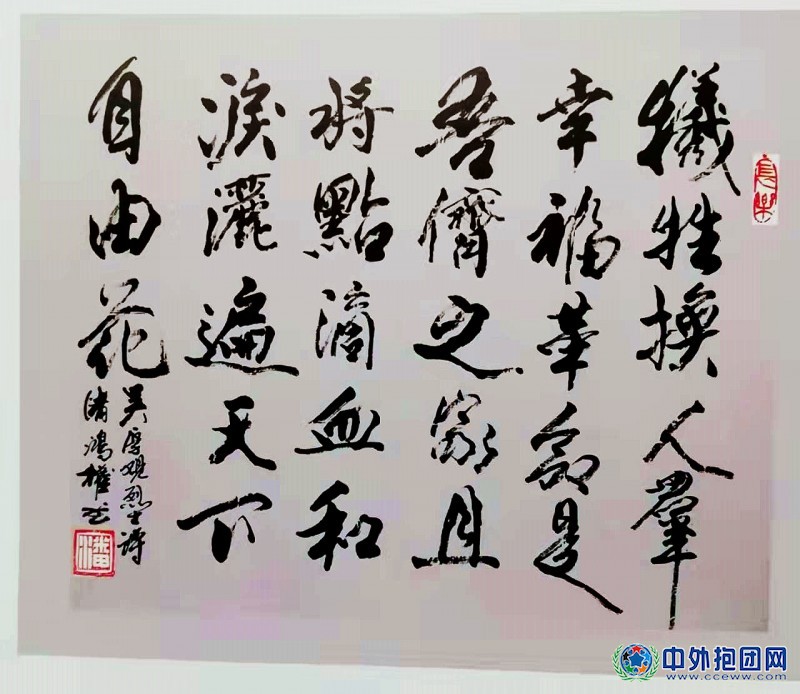 長樂
犧牲換人羣
幸福革命是
吾儕之家且
將點滴血和
淚灑遍天下
自由花
吴厚觀烈士詩
潘鴻權书
潘
中外抱团网
www.cceww.com